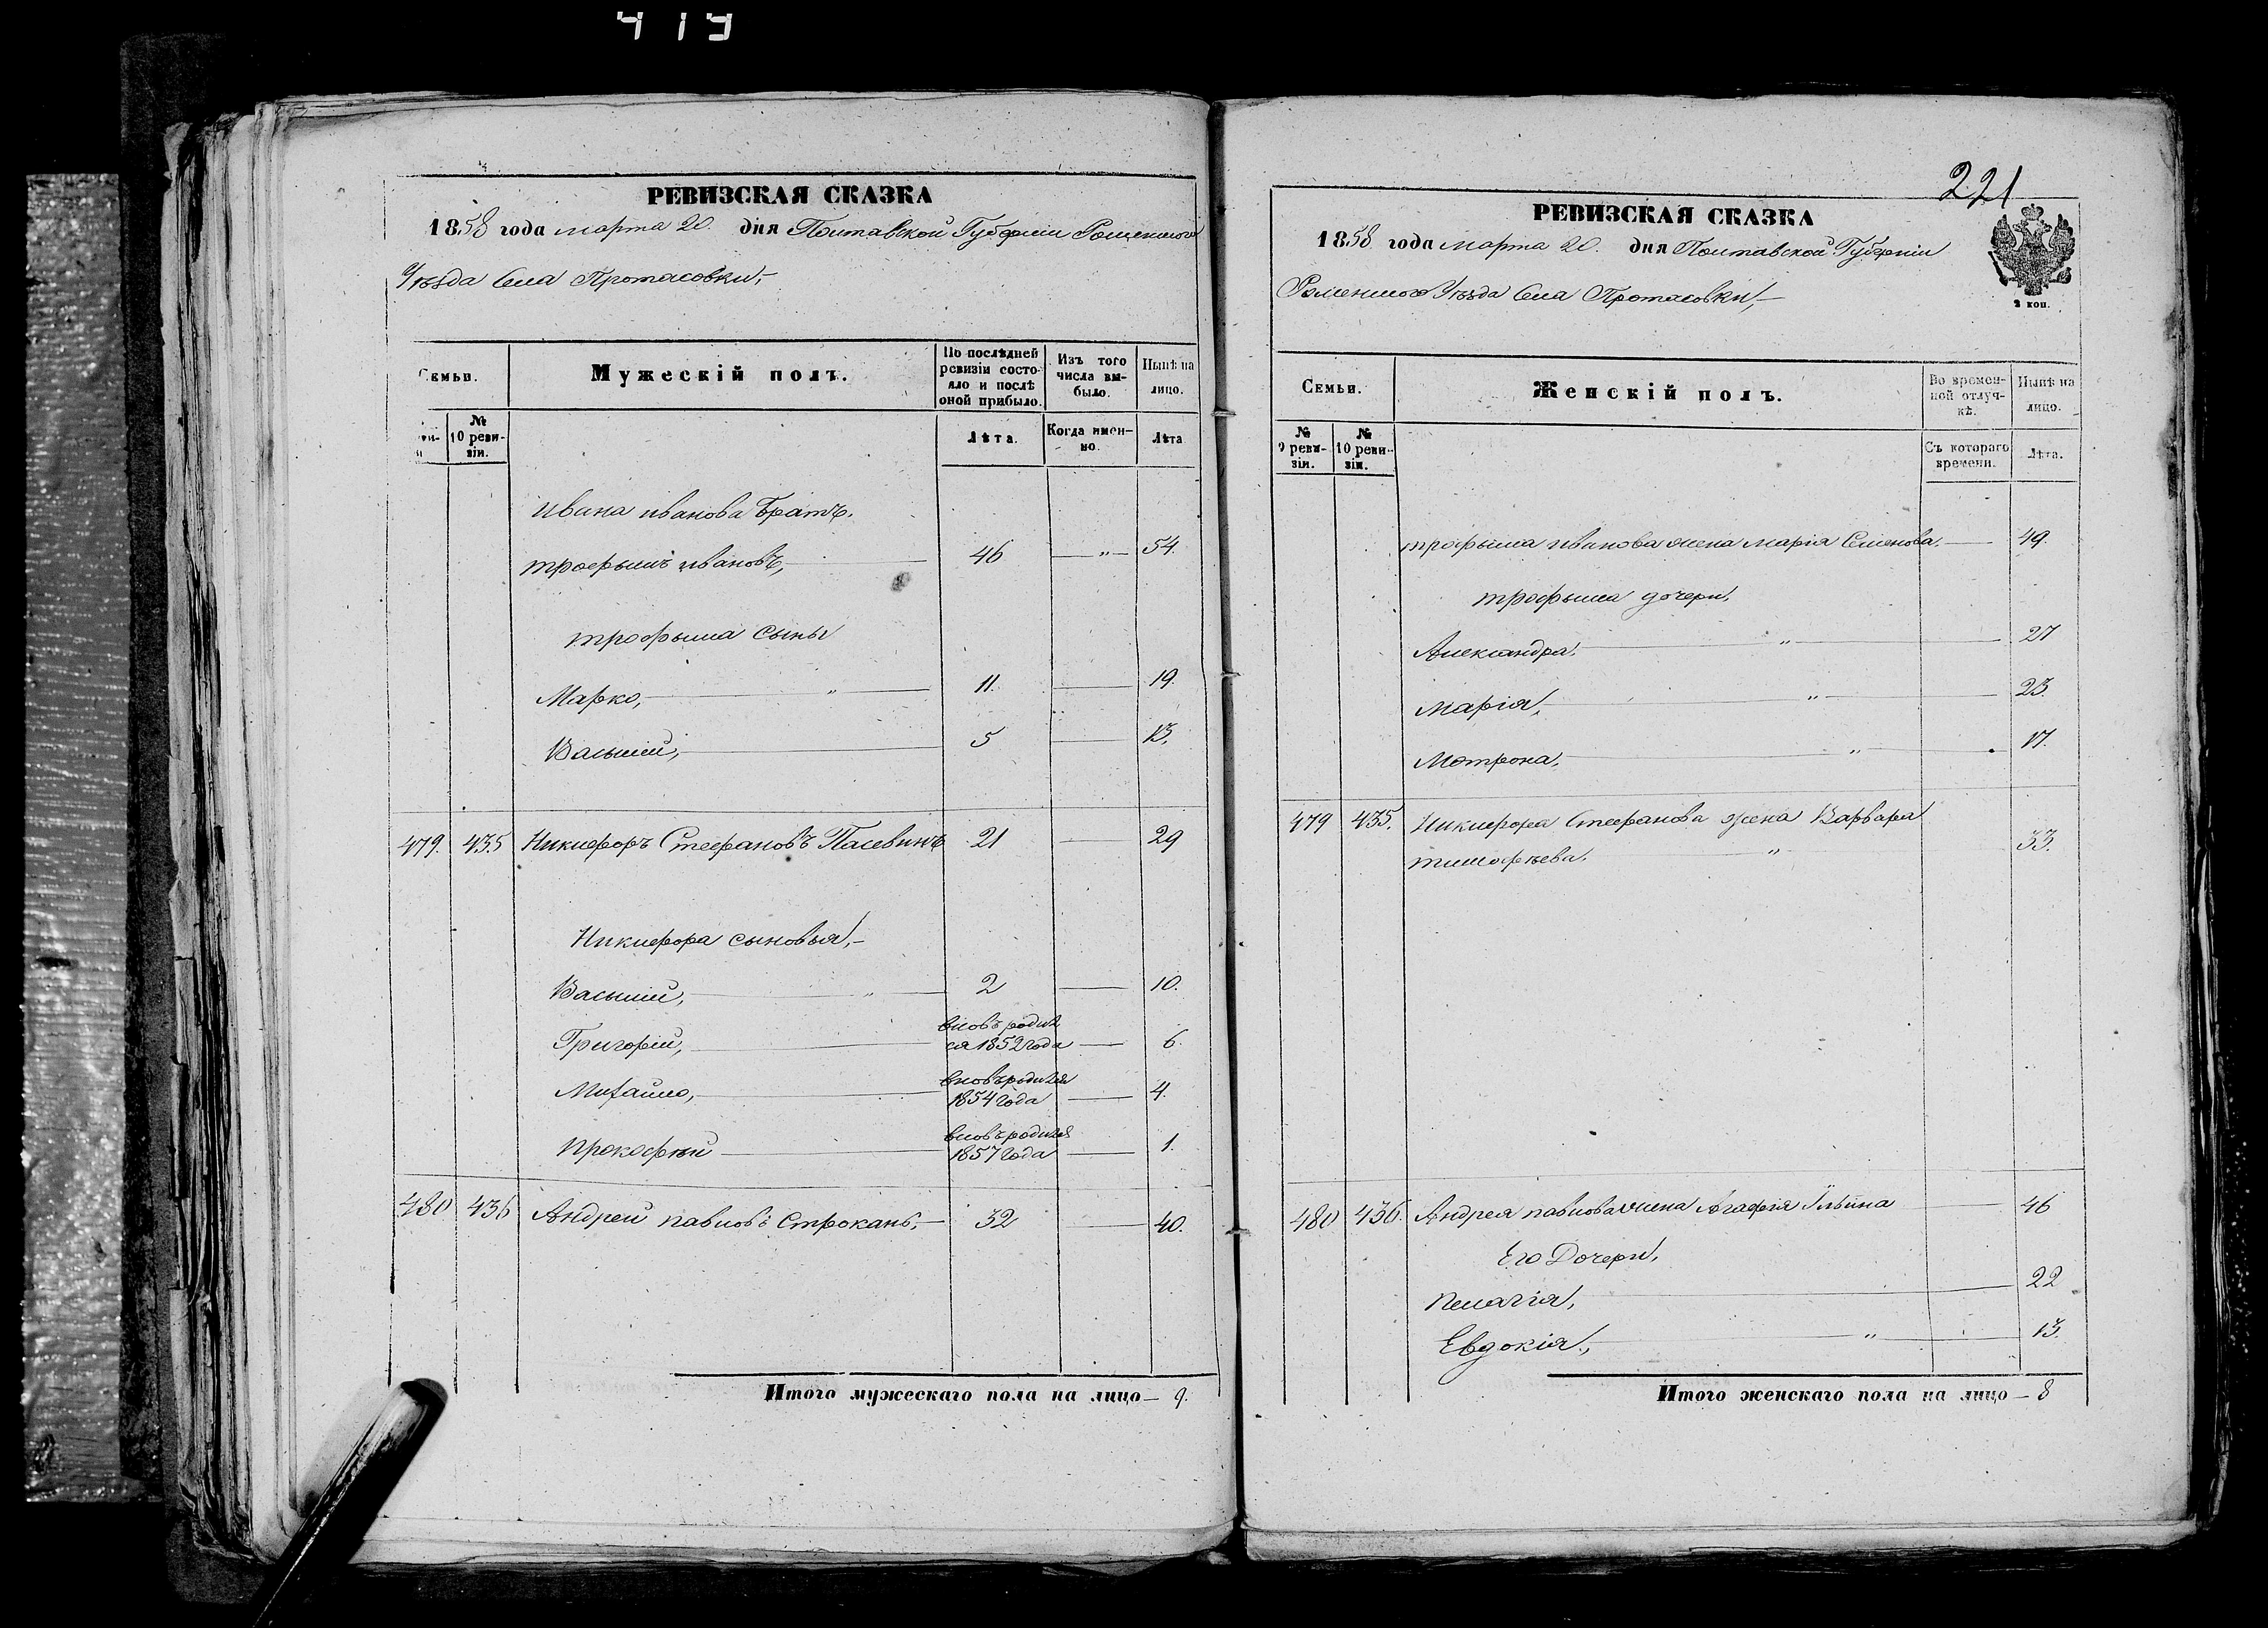 419
РЕВИЗСКАЯ СКАЗКА
1858 года марта 20. дня Полтавской Губерніи Роменского
Уѣзда Села Протасовки,
Семьи.
Мужескій полъ.
По послѣдней ревизіи состояло и послѣ оной прибыло.
Изъ того числа выбыло.
Нынѣ на лицо.
№ 10 ревизіи.
Лѣта.
Когда именно.
Лѣта
Ивана иванова Братъ.
трофымъ ивановъ, 46 — " — 54.
трофыма сыны
Марко, " 11. — 19.
Василий, 5 — 13.
479. 435 Никифоръ Стефановъ Пасевинъ 21 — 29
Никифора сыновья,
Василий, " 2 — 10.
Григорій, вновь родил
ся 1852 года — 6.
Михайло, вновь родился
1854 года — 4.
Прокофѣй вновь родился
1857 года — 1.
480 436 Андрей павловъ Строкань, 32 — 40.
Итого мужескаго пола на лицо — 9.
221
РЕВИЗСКАЯ СКАЗКА
1858 года марта 20. дня Полтавской Губерніи
Роменского Уѣзда Села Протасовки,
2 коп.
Семьи.
Женскій полъ.
Во временной отлучкѣ.
Нынѣ на лицо.
№ 9 ревизіи.
№ 10 ревизіи.
Съ котораго времени.
Лѣта.
трофыма иванова жена марія Семенова. — 49.
трофыма дочери,
Александра. " 27
марія, " 23.
Мотрона, " 17.
479 435. Никифора Стефанова жена Варвара
тимофѣева. " 33.
480 436. Андрея павлова жена Агафія Ильина 46
Его Дочери,
Пелагія, 22
Евдокія, " 13.
Итого женскаго пола на лицо — 8